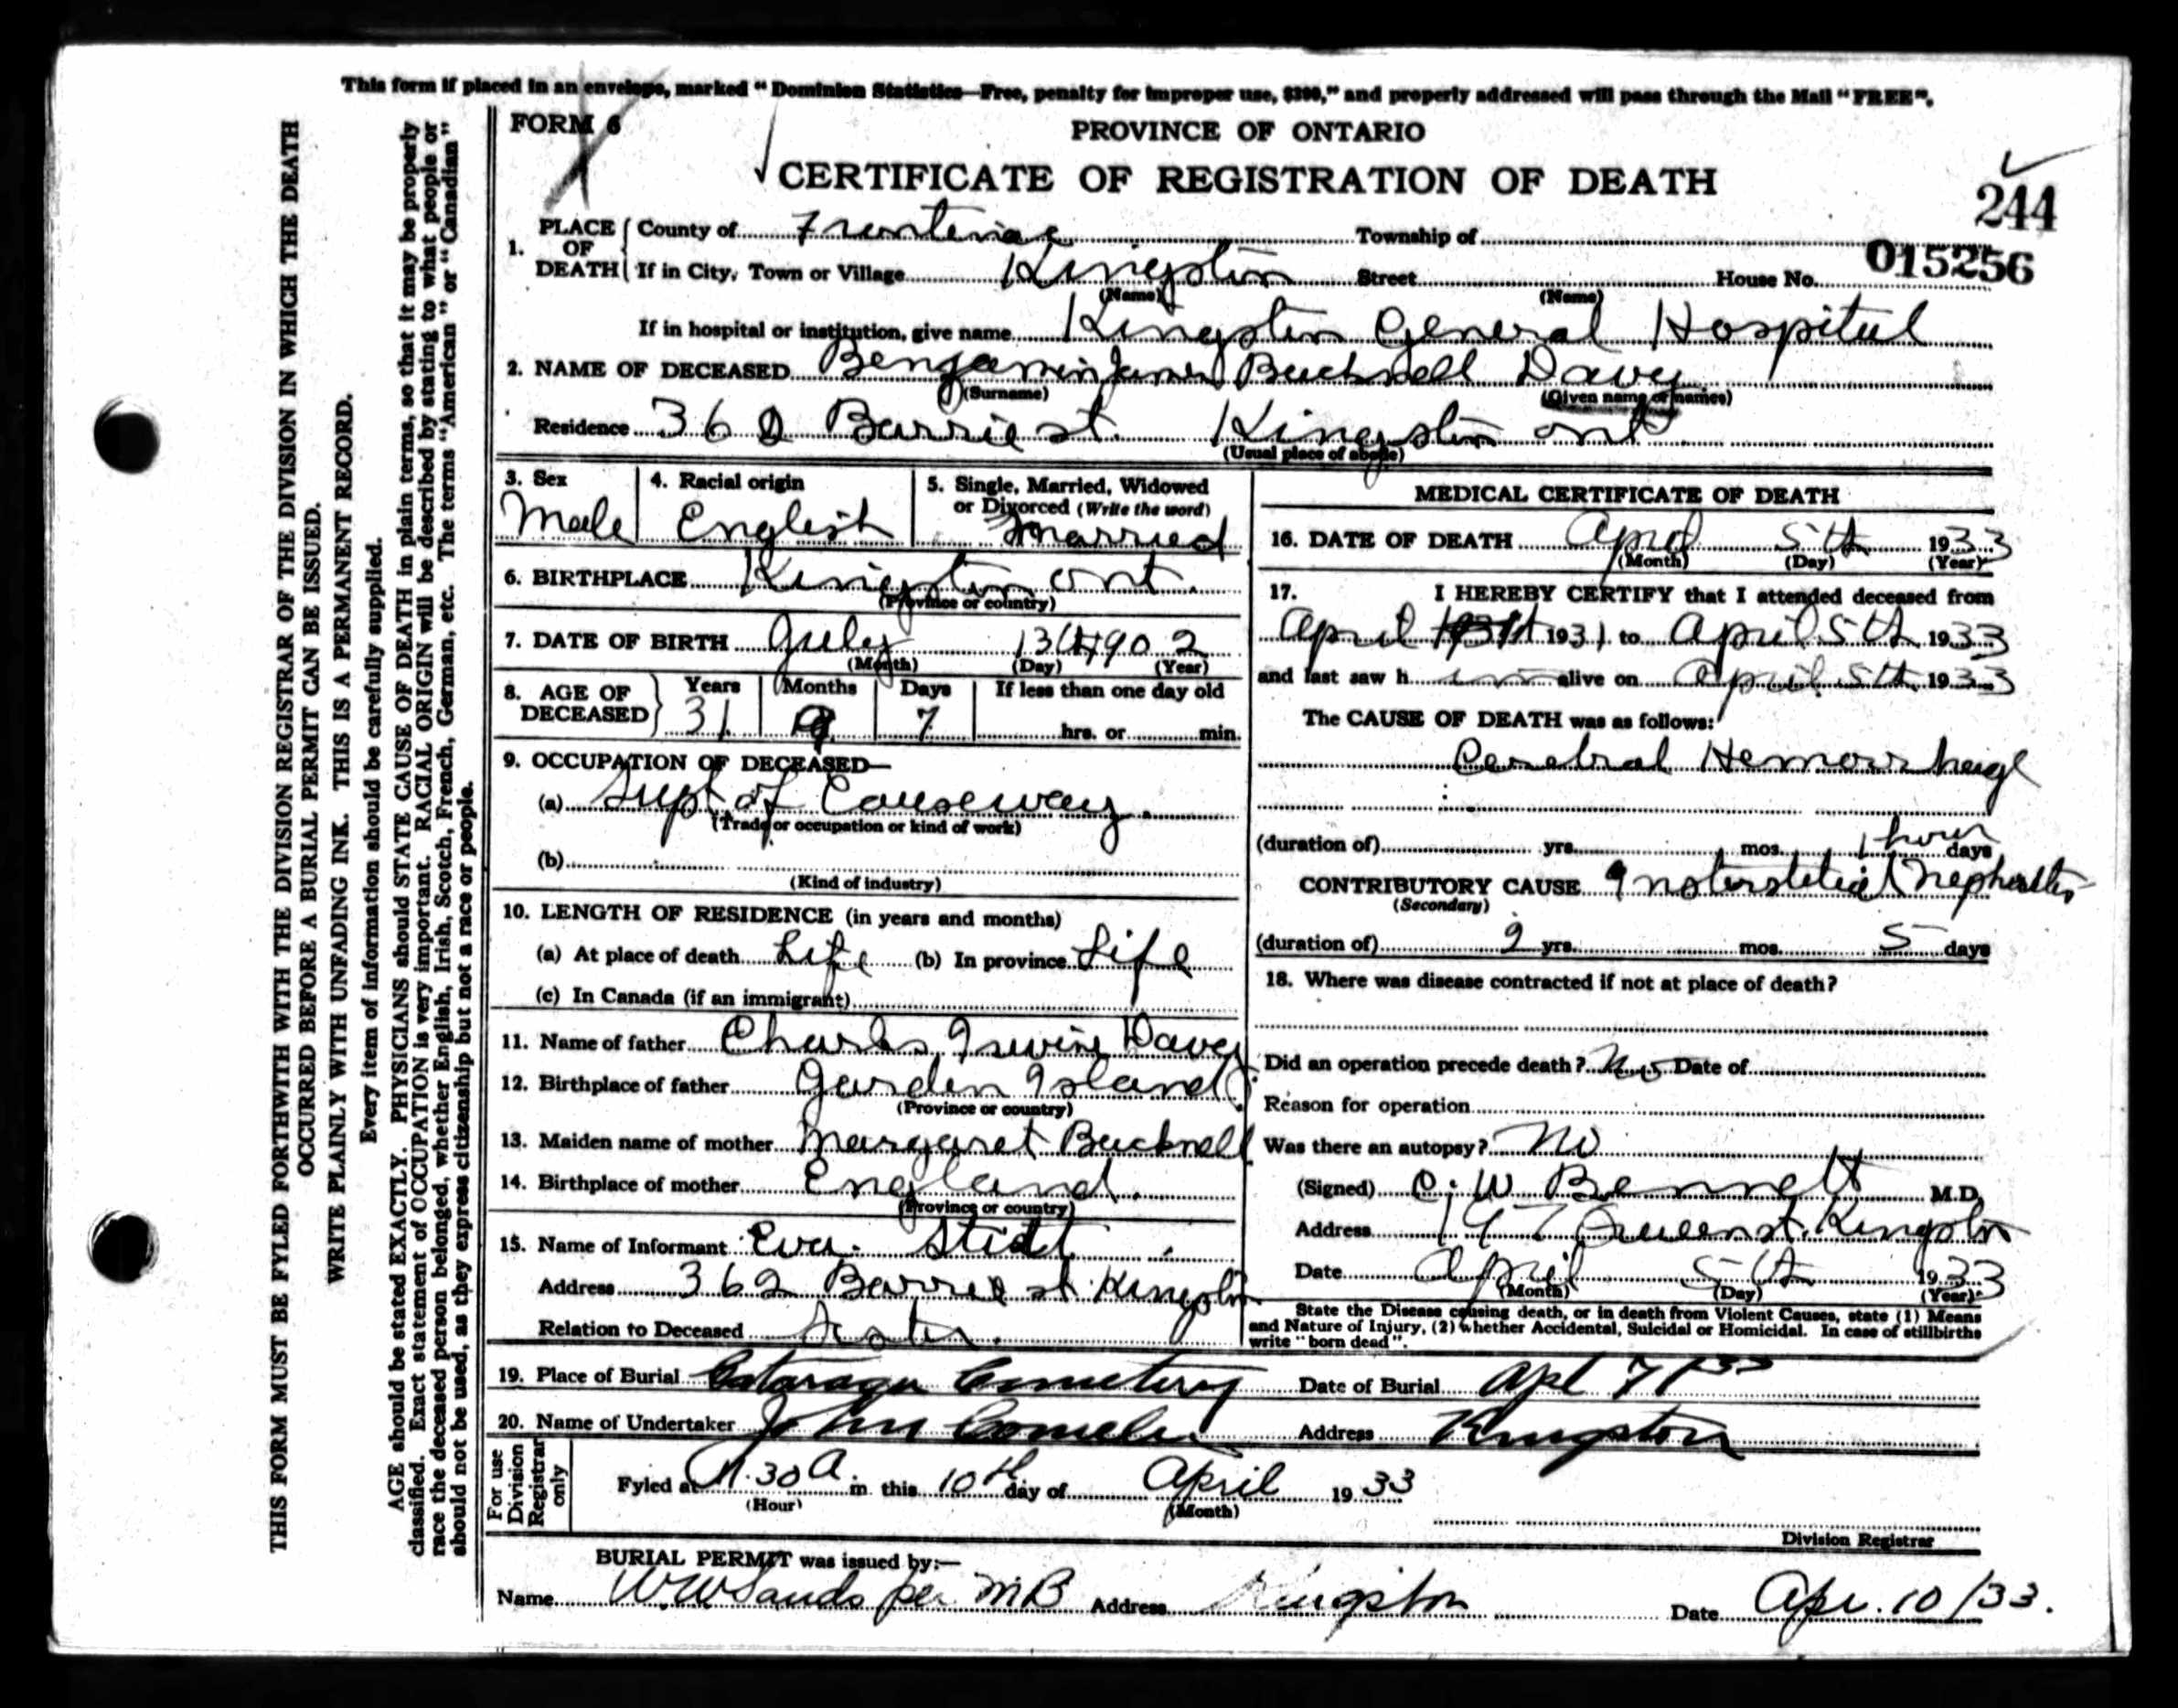 This form if placed in an envelope, marked "Dominion Statistics—Free, penalty for improper use, $300," and properly addressed will pass through the Mail "FREE".
FORM 6
PROVINCE OF ONTARIO
CERTIFICATE OF REGISTRATION OF DEATH
244
015256
1. PLACE OF DEATH County of Frontenac Township of
If in City, Town or Village Kingston Street House No.
(Name) (Name)
If in hospital or institution, give name Kingston General Hospital
2. NAME OF DECEASED Benjamin James Bucknell Davy
(Surname) (Given name or names)
Residence 362 Barrie st. Kingston ont
(Usual place of abode)
3. Sex Male
4. Racial origin English
5. Single, Married, Widowed or Divorced (Write the word) Married
6. BIRTHPLACE Kingston ont.
(Province or country)
7. DATE OF BIRTH July 13th 1902
(Month) (Day) (Year)
8. AGE OF DECEASED Years Months Days If less than one day old
31 9 7 hrs. or min.
9. OCCUPATION OF DECEASED—
(a) Supt of Causeway.
(Trade or occupation or kind of work)
(b)
(Kind of industry)
10. LENGTH OF RESIDENCE (in years and months)
(a) At place of death Life (b) In province Life
(c) In Canada (if an immigrant)
11. Name of father Charles Irwine Davey
12. Birthplace of father Garden Island
(Province or country)
13. Maiden name of mother Margaret Bucknell
14. Birthplace of mother England.
(Province or country)
15. Name of Informant Eva
Address 362 Barrie st Kingston
Relation to Deceased Sister.
MEDICAL CERTIFICATE OF DEATH
16. DATE OF DEATH April 5th 1933
(Month) (Day) (Year)
17. I HEREBY CERTIFY that I attended deceased from
April 1931 to April 5th 1933
and last saw h im alive on April 5th 1933
The CAUSE OF DEATH was as follows:
Cerebral Hemorrhage
(duration of) yrs. mos. 1 hour days
CONTRIBUTORY CAUSE Insterstetial Nephritis
(Secondary)
(duration of) 2 yrs. mos. 5 days
18. Where was disease contracted if not at place of death?
Did an operation precede death? No Date of
Reason for operation
Was there an autopsy? No
(Signed) C. W Bennett M.D.
Address 197 Queen st. Kingston
Date April 5th 1933
(Month) (Day) (Year)
State the Disease causing death, or in death from Violent Causes, state (1) Means
and Nature of Injury, (2) whether Accidental, Suicidal or Homicidal. In case of stillbirths
write "born dead".
19. Place of Burial Cataraqui Cemetery Date of Burial Apl 7/33
20. Name of Undertaker John Address Kingston
For use Division Registrar only
Fyled at 11.30 A. m this 10th day of April 1933
(Hour) (Month)
Division Registrar
BURIAL PERMIT was issued by:—
Name W.W Sands per MB Address Kingston Date Apr. 10/33.
THIS FORM MUST BE FYLED FORTHWITH WITH THE DIVISION REGISTRAR OF THE DIVISION IN WHICH THE DEATH
OCCURRED BEFORE A BURIAL PERMIT CAN BE ISSUED.
WRITE PLAINLY WITH UNFADING INK. THIS IS A PERMANENT RECORD.
Every item of information should be carefully supplied.
AGE should be stated EXACTLY. PHYSICIANS should STATE CAUSE OF DEATH in plain terms, so that it may be properly
classified. Exact statement of OCCUPATION is very important. RACIAL ORIGIN will be described by stating to what people or
race the deceased person belonged, whether English, Irish, Scotch, French, German, etc. The terms "American" or "Canadian"
should not be used, as they express citizenship but not a race or people.